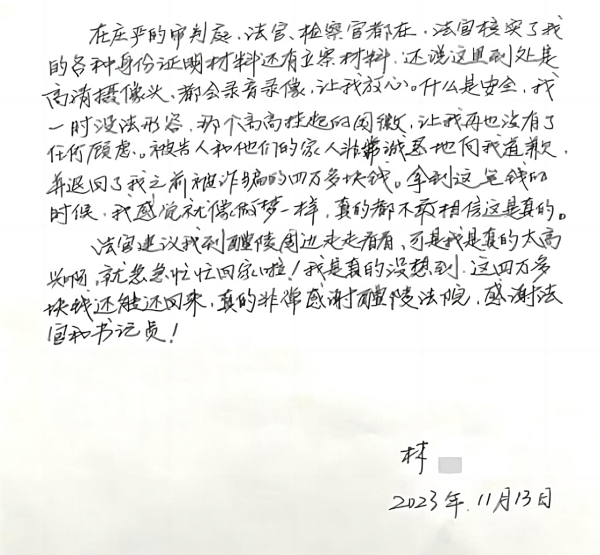 在庄严的审判庭，法官、检察官都在，法官核实了我
的各种身份证明材料还有立案材料，还说这里到处是
高清摄像头，都会录音录像，让我放心。什么是安全，我
一时没法形容，那个高高挂起的国徽，让我再也没有了
任何顾虑。被告人和他们的家人非常诚恳地向我道歉，
并退回了我之前被诈骗的四万多块钱。拿到这笔钱的
时候，我感觉就像做梦一样，真的都不敢相信这是真的。
法官建议我到醴陵周边走走看看，可是我是真的太高
兴啊，就急急忙忙回家啦！我是真的没想到，这四万多
块钱还能还回来，真的非常感谢醴陵法院，感谢法
官和书记员！
林
2023年11月13日